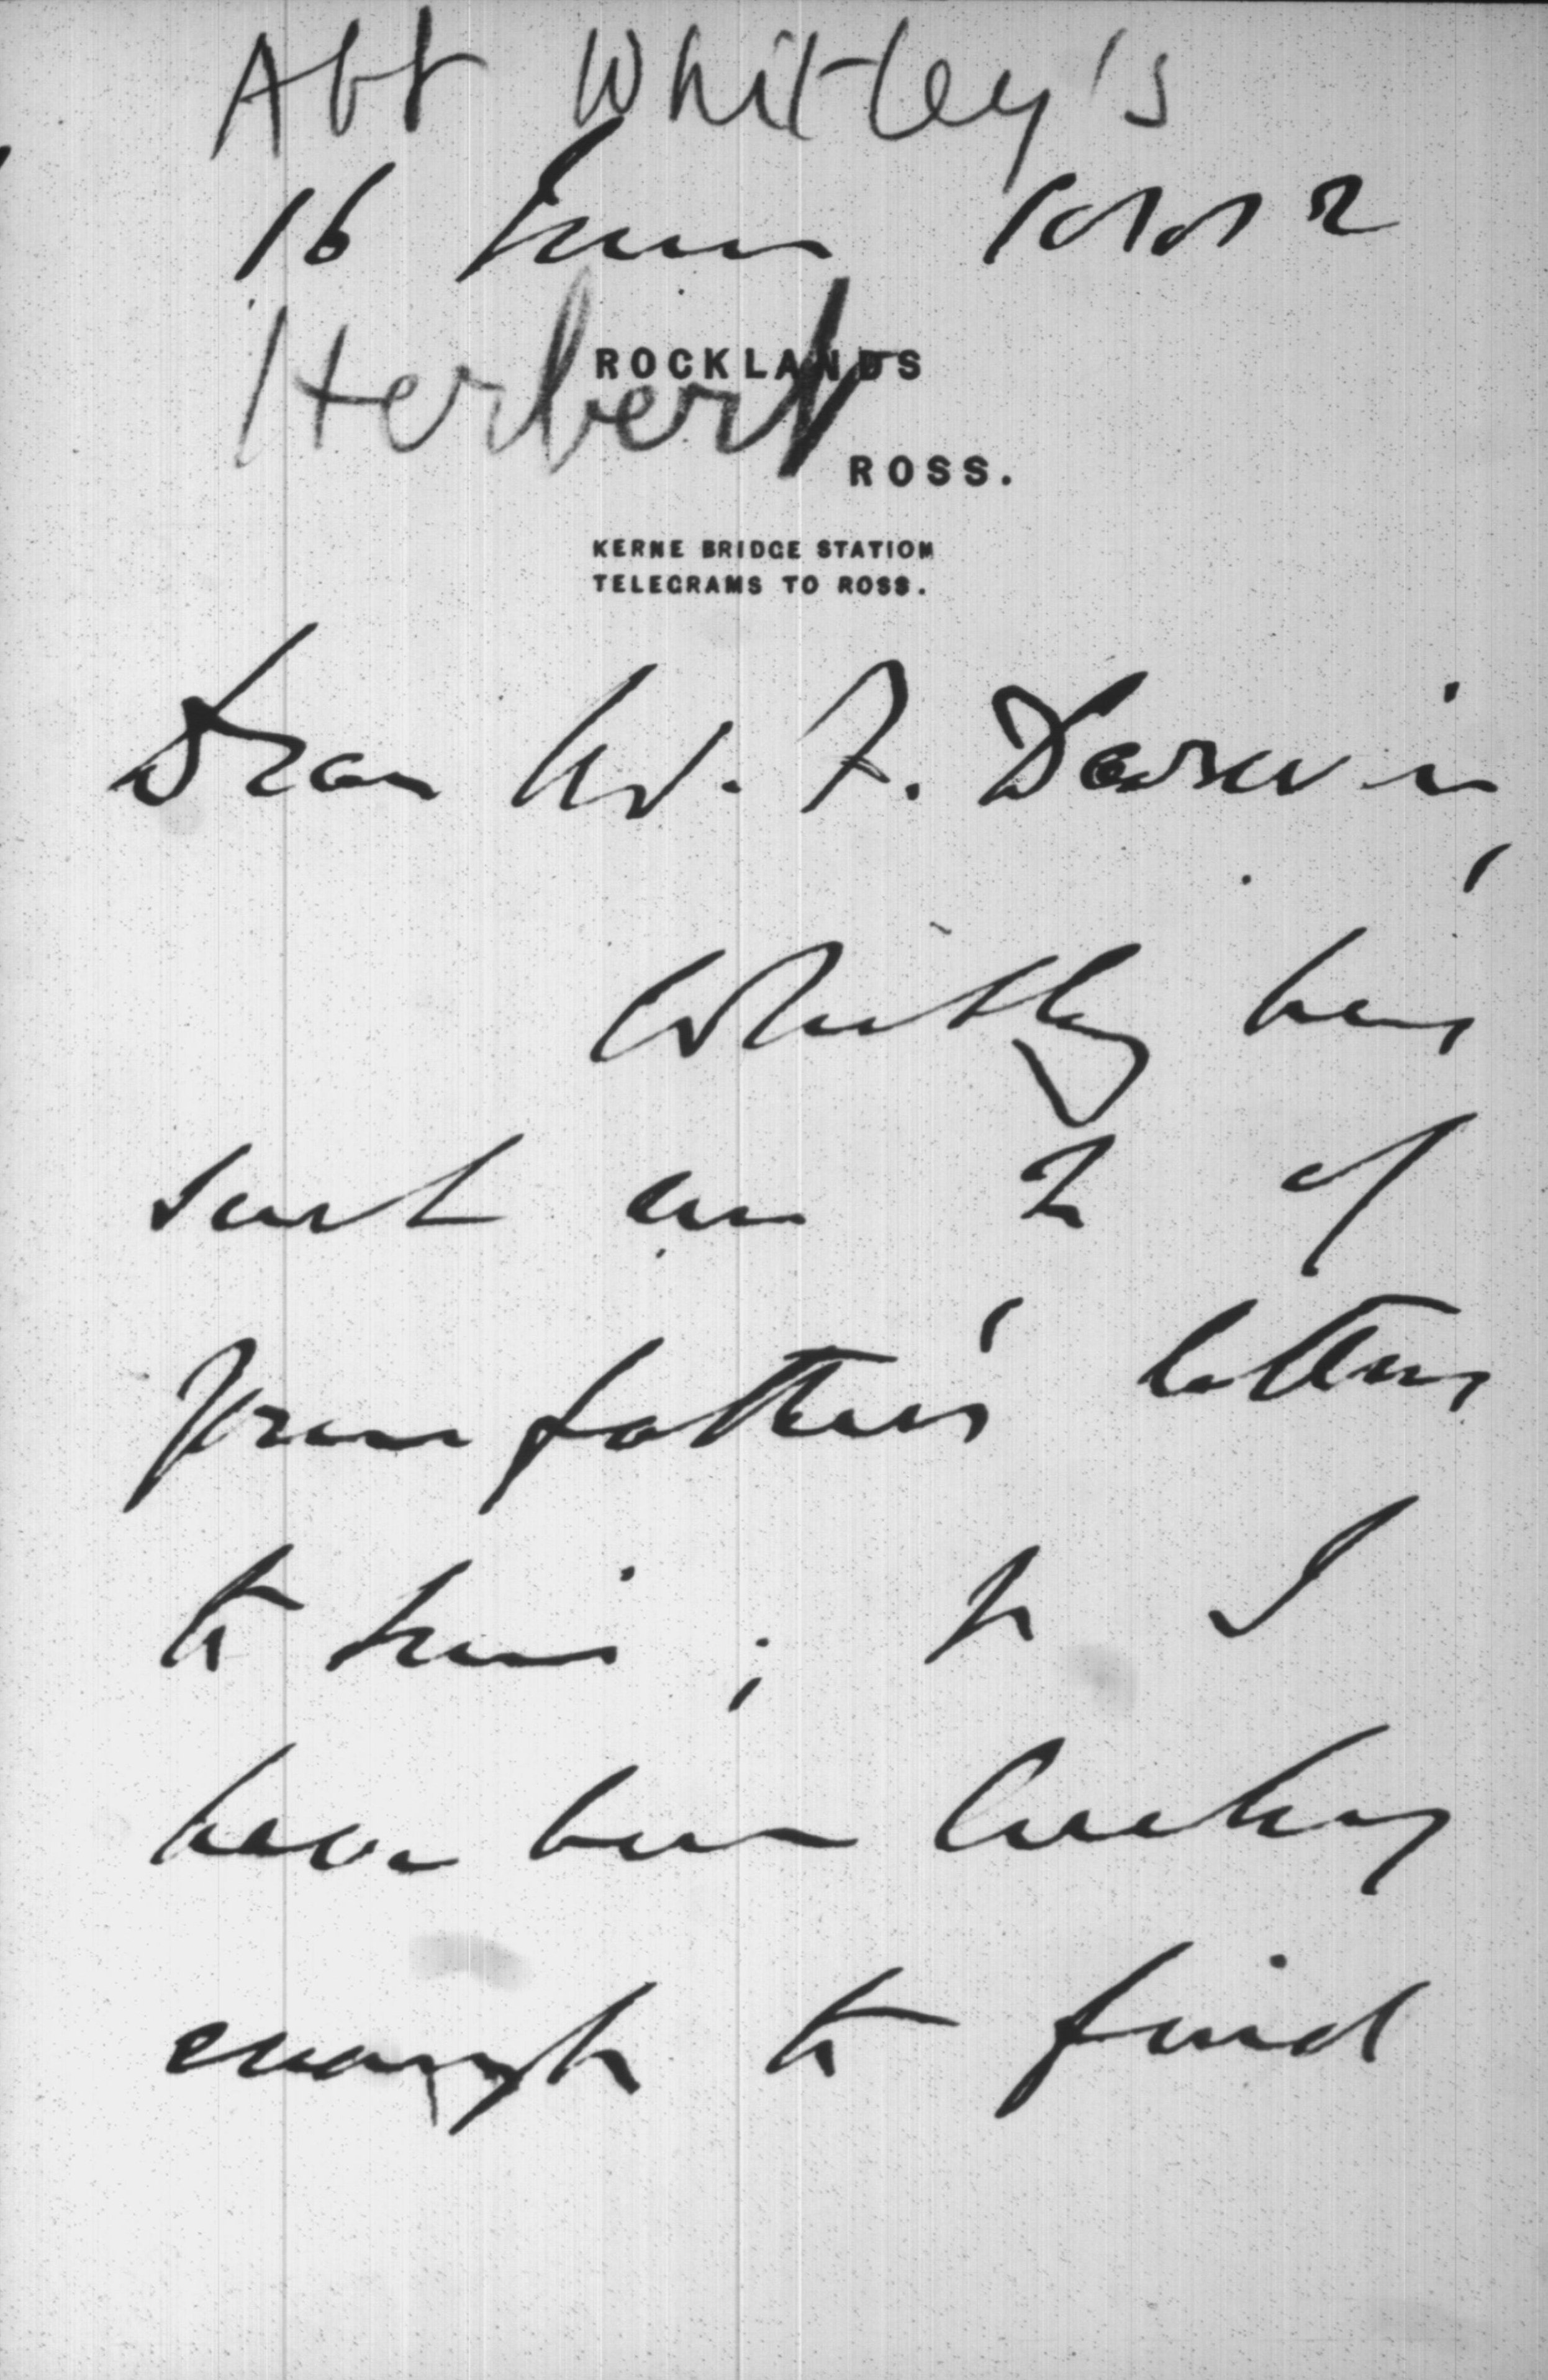 Abt Whitley's
16 June 1882
Herbert
ROCKLANDS
ROSS.
KERNE BRIDGE STATION
TELEGRAMS TO ROSS.
Dear Mr. F. Darwin,
Whitley has
sent me 2 of
your father's letters
to him; & I
have been lucky
enough to find